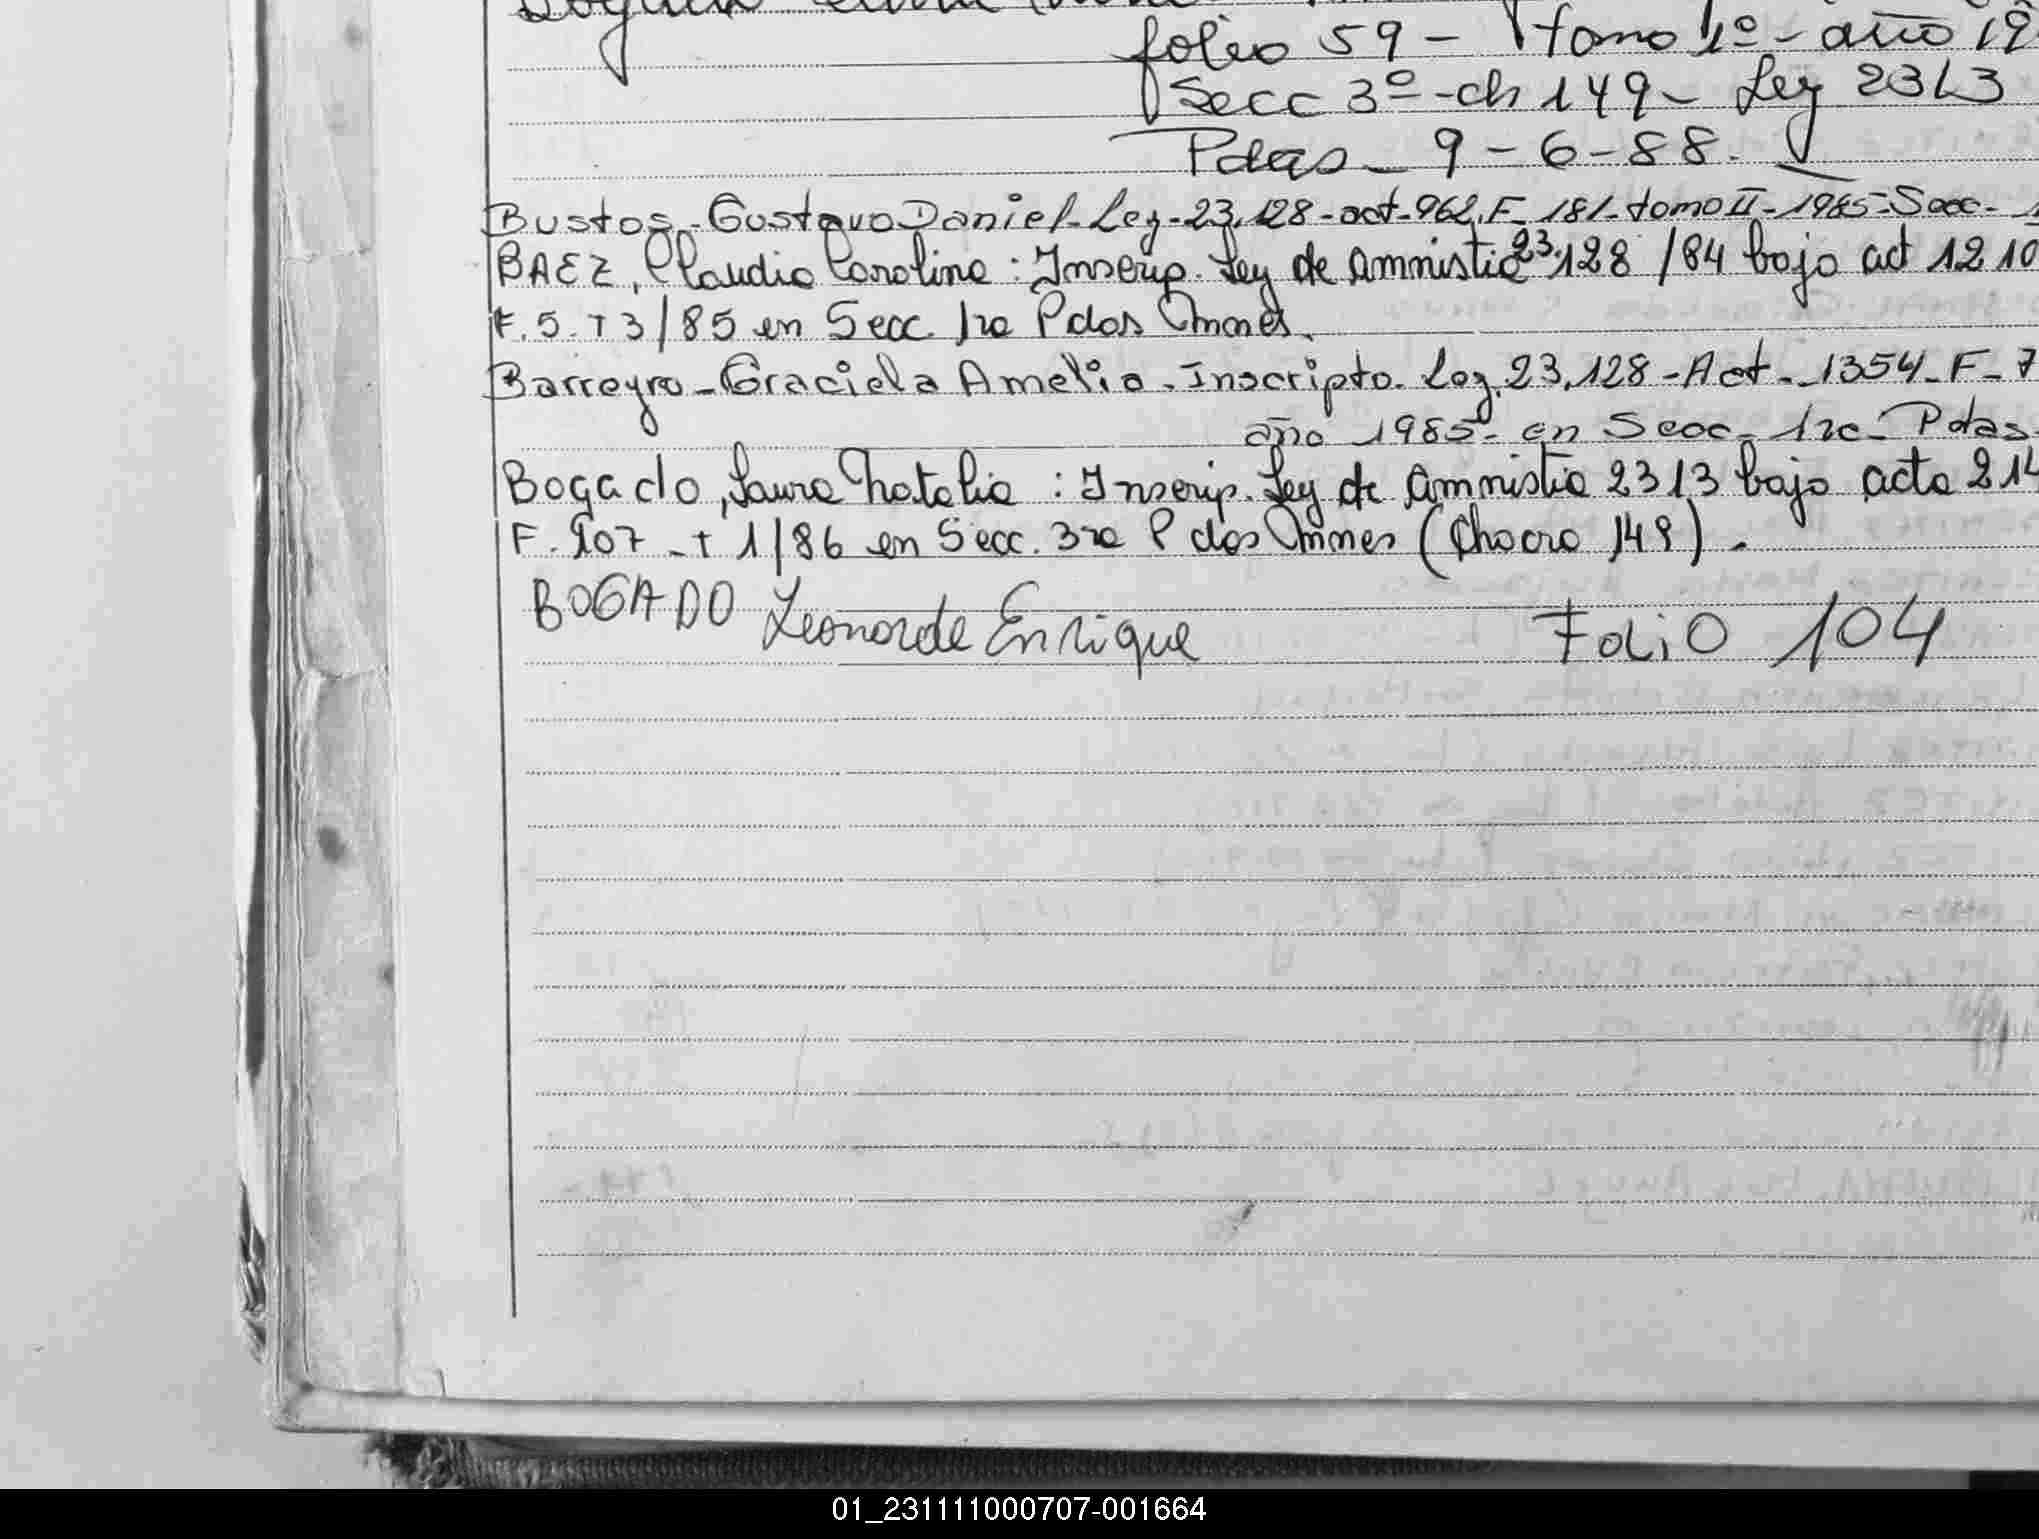 folio 59 - tomo 1º - año 19
Secc 3º - ch 149 - Ley 2313
Pdas - 9 - 6 - 88.
Bustos - Gustavo Daniel - Ley - 23.128 - act - 962 F - 181 - tomo II - 1985 - Secc - 1
BAEZ, Claudia Carolina : Inscrip. Ley de amnistia 23.128 / 84 bajo act 1210
F. 5. T 3 / 85 en Secc. 1ra Pdas Mnes.
Barreyro - Graciela Amelia - Inscripta - Ley 23.128 - Act - 1354 - F - 7
año 1985 - en Secc - 1ra - Pdas.
Bogado, Laura Natalia : Inscrip. Ley de amnistia 2313 bajo acta 214
F. 107 - T 1 / 86 en Secc. 3ra Pdas Mnes (Chacra 149) -
BOGADO Leonarda Enrique Folio 104
01_231111000707-001664